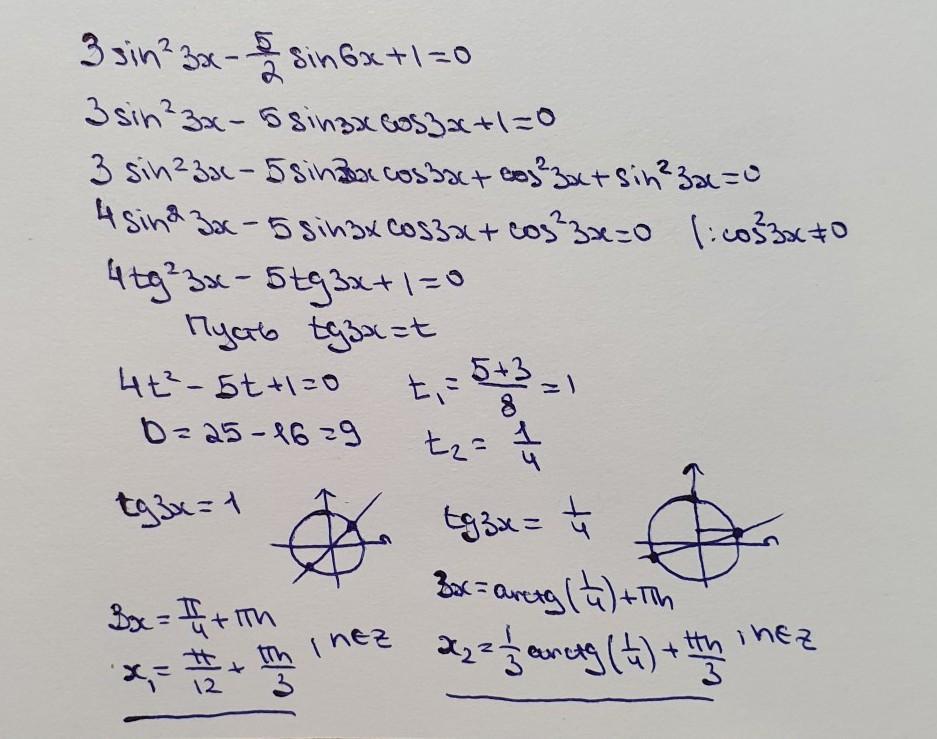 3 sin² 3x - 5/2 sin6x + 1 = 0
3 sin² 3x - 5 sin3x cos3x + 1 = 0
3 sin² 3x - 5 sin3x cos3x + cos² 3x + sin² 3x = 0
4 sin² 3x - 5 sin3x cos3x + cos² 3x = 0 | : cos² 3x ≠ 0
4 tg² 3x - 5 tg3x + 1 = 0
Пусть tg3x = t
4t² - 5t + 1 = 0 t₁ = (5+3)/8 = 1
D = 25 - 16 = 9 t₂ = 1/4
tg3x = 1 tg3x = 1/4
3x = π/4 + πn 3x = arctg(1/4) + πn
x₁ = π/12 + πn/3 , n∈z x₂ = 1/3 arctg(1/4) + πn/3 , n∈z